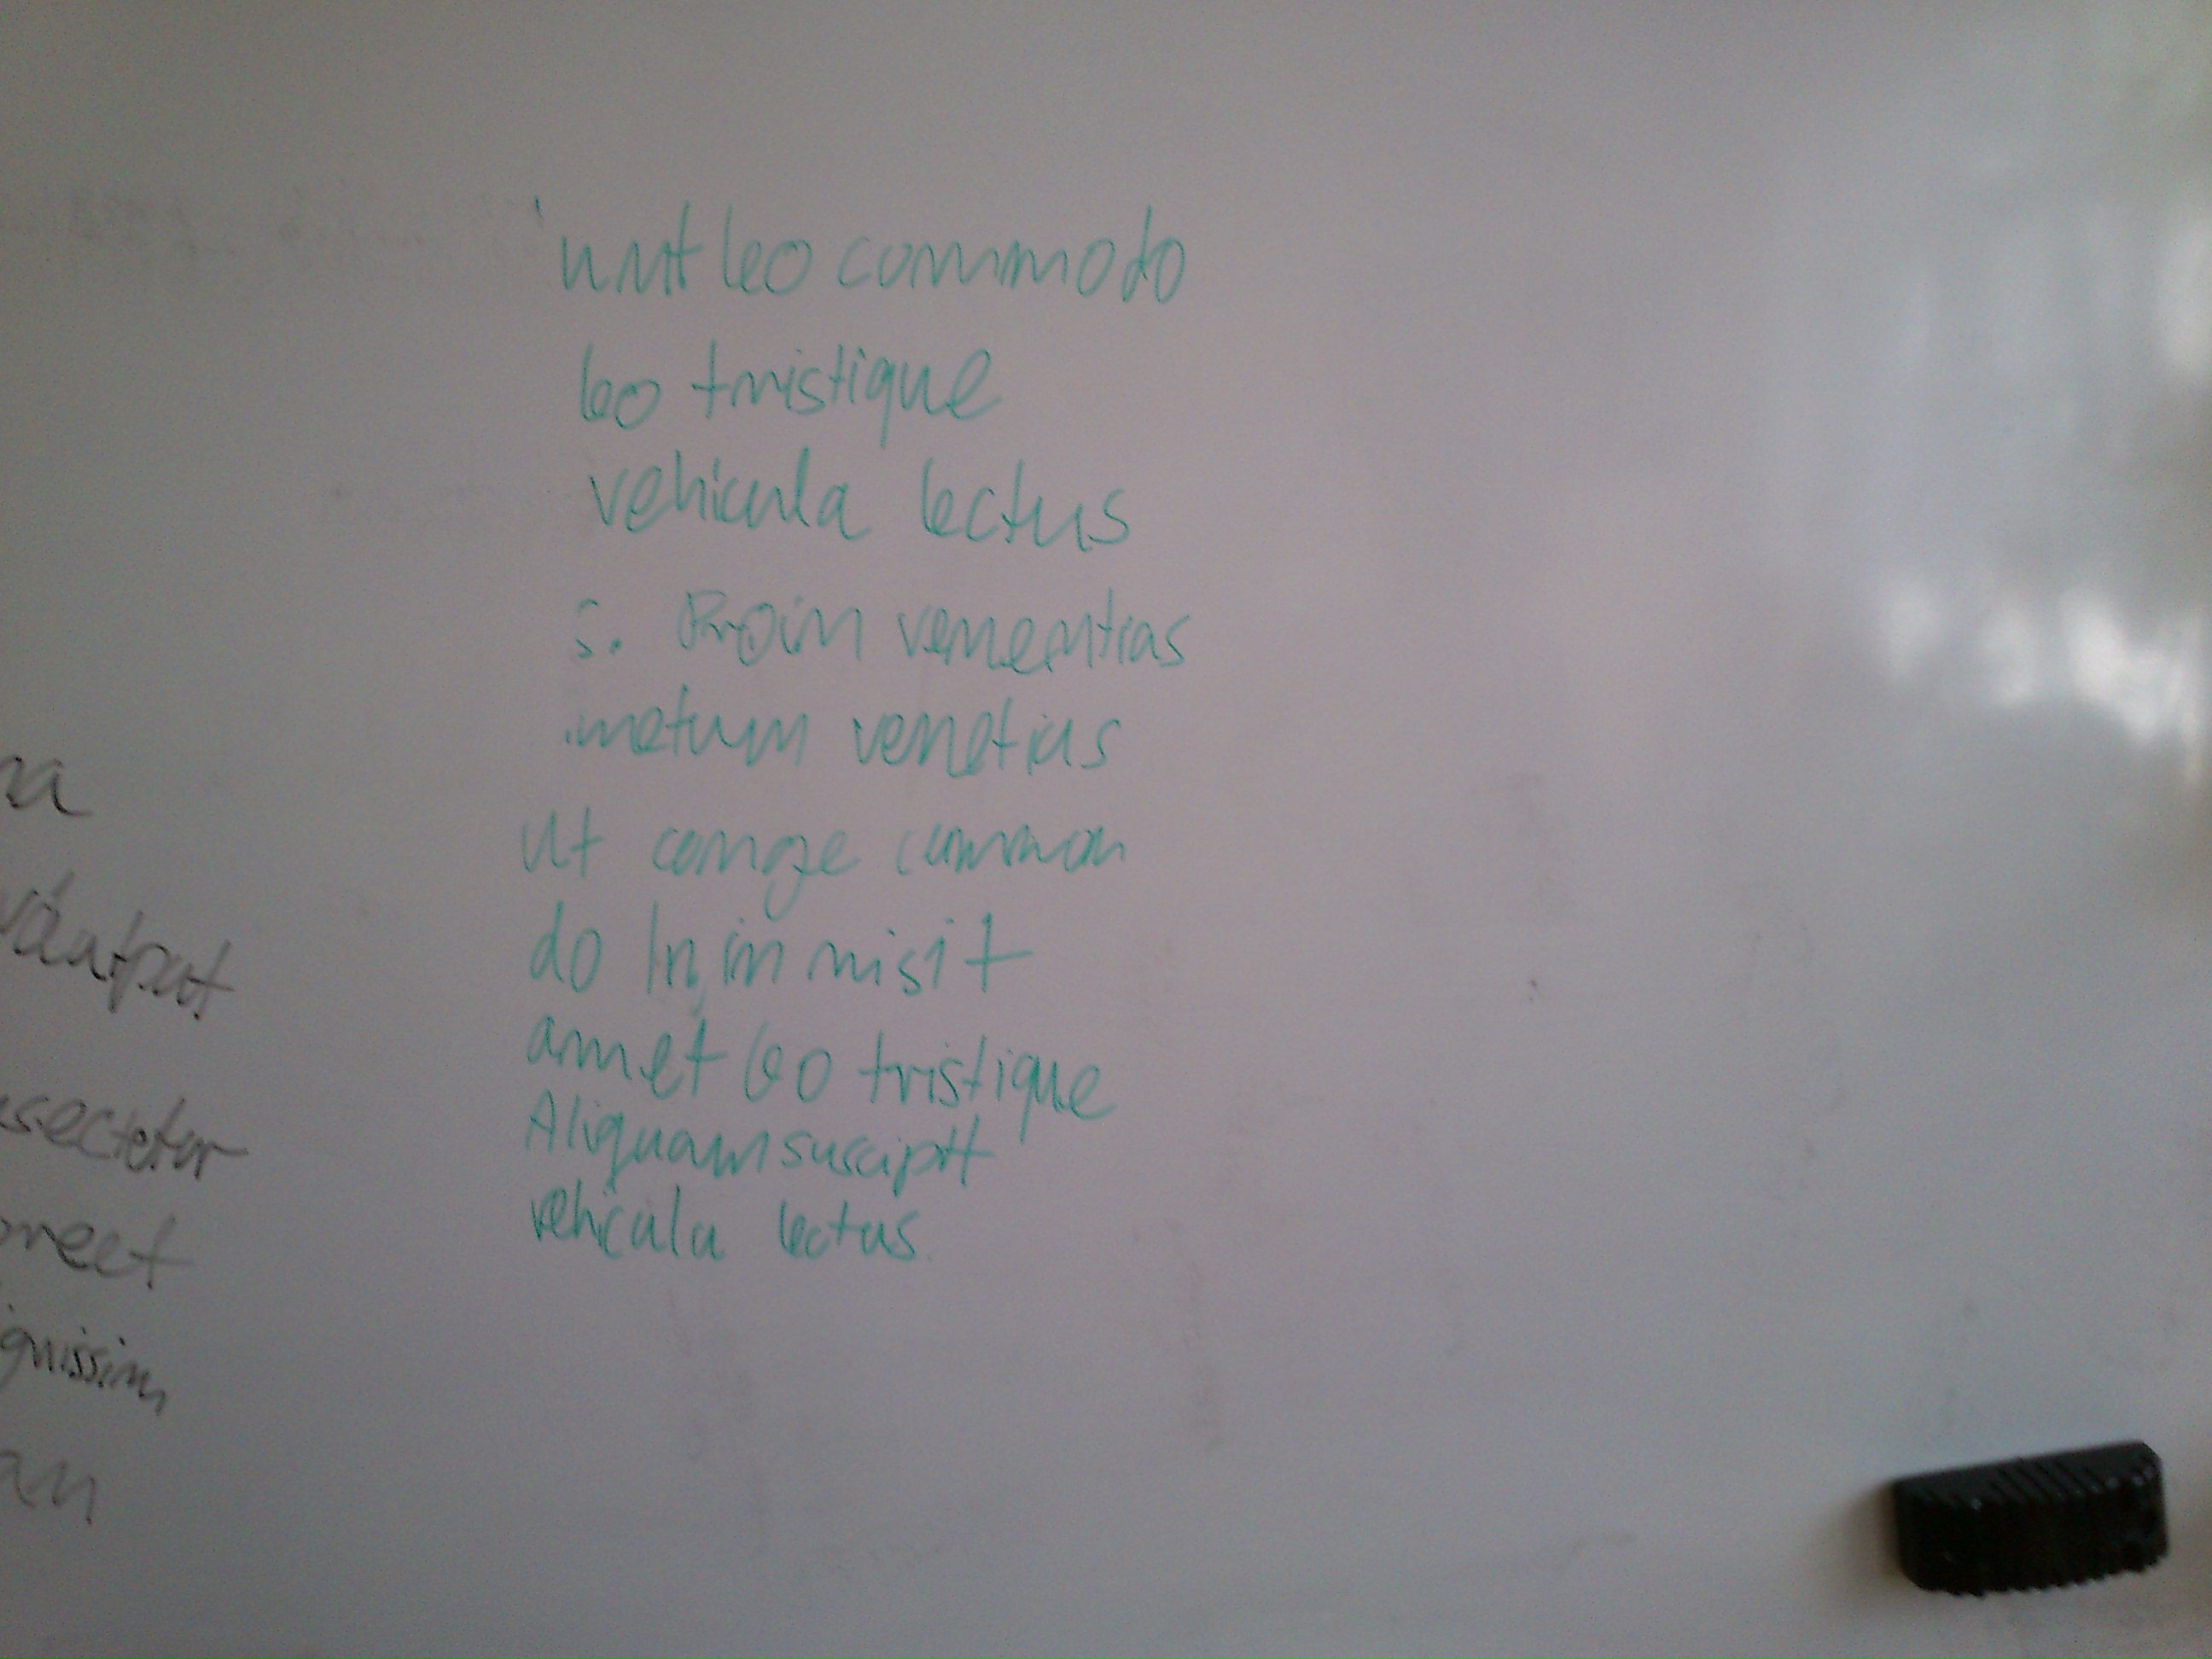 na
volutpat
nsectetur
oreet
ignissim
an
leo commodo
leo tristique
vehicula lectus
s. Proin
metum
Ut congue common
do In in nisi t
amet leo tristique
Aliquam suscipit
vehicula lectus.